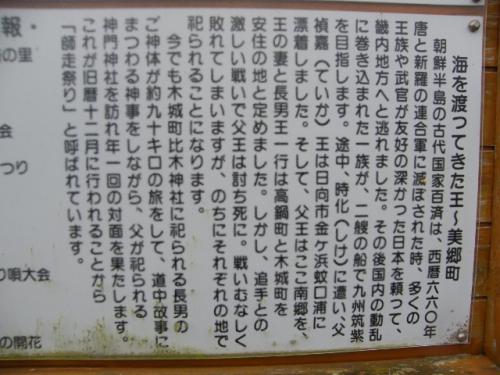 海を渡ってきた王～美郷町
朝鮮半島の古代国家百済は、西暦六六〇年
唐と新羅の連合軍に滅ぼされた時、多くの
王族や武官が友好の深かった日本を頼って、
畿内地方へと逃れました。その後国内の動乱
に巻き込まれた一族が、二艘の船で九州筑紫
を目指します。途中、時化（しけ）に遭い、父
禎嘉（ていか）王は日向市金ヶ浜蚊口浦に
漂着しました。そして、父王はここ南郷を、
王の妻と長男王一行は高鍋町と木城町を
安住の地と定めました。しかし、追手との
激しい戦いで父王は討ち死に。戦いむなしく
敗れてしまいますが、のちにそれぞれの地で
祀られることになります。
今でも木城町比木神社に祀られる長男の
ご神体が約九十キロの旅をして、道中故事に
まつわる神事をしながら、父が祀られる
神門神社を訪れ年一回の対面を果たします。
これが旧暦十二月に行われることから
「師走祭り」と呼ばれています。
報・
の里
会
つり
り唄大会
の開花